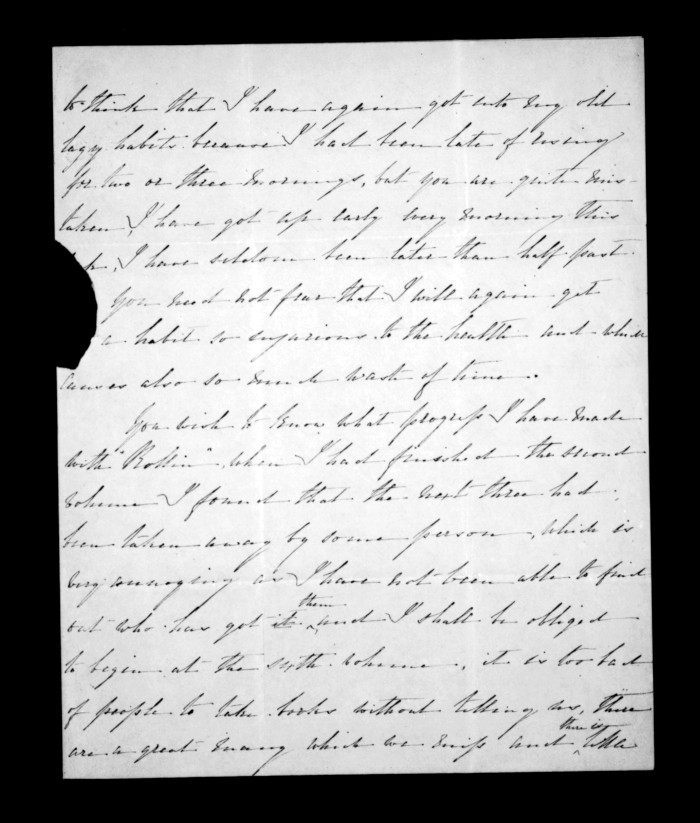 to think that I have again got into my old
lazy habits because I had been late of rising
for two or three mornings, but you are quite mis-
taken, I have got up early every morning this
I have seldom been later than half past
You need not fear that I will again get
a habit so injurious to the health and which
causes also so much waste of time.
You wish to know what progress I have made
with "Rollin" when I had finished the second
volume I found that the next three had
been taken away by some person, which is
very annoying as I have not been able to find
out who has got it them and I shall be obliged
to begin at the sixth volume, it is too bad
of people to take books without telling us, there
are a great many which we miss and there is